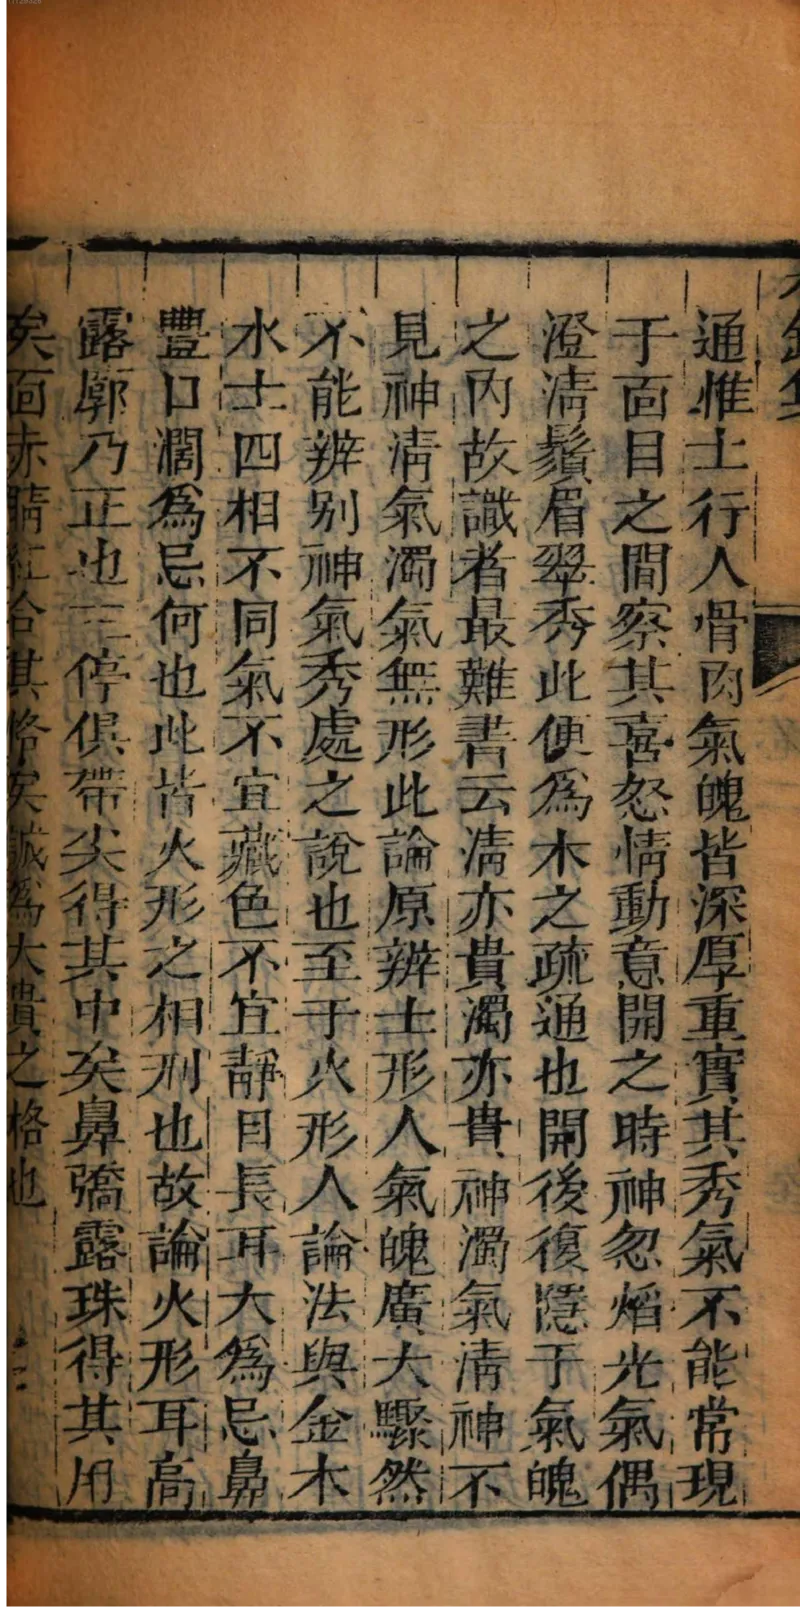 通惟土行人骨肉氣魄皆深厚重實其秀氣不能常現
于面目之間察其喜怒情動意開之時神忽焰光氣偶
澄清鬚眉翠秀此便為木之疏通也開後復隱于氣魄
之内故識者最難書云清亦貴濁亦貴神濁氣清神不
見神清氣濁氣無形此論原辨土形人氣魄廣大驟然
不能辨别神氣秀處之說也至于火形人論法與金木
水土四相不同氣不宜藏色不宜靜目長耳大為忌鼻
豐口濶為忌何也此皆火形之相刑也故論火形耳高
露廓乃正也三停俱帶尖得其中矣鼻喬露珠得其用
矣面赤睛紅合其格矣誠為大貴之格也